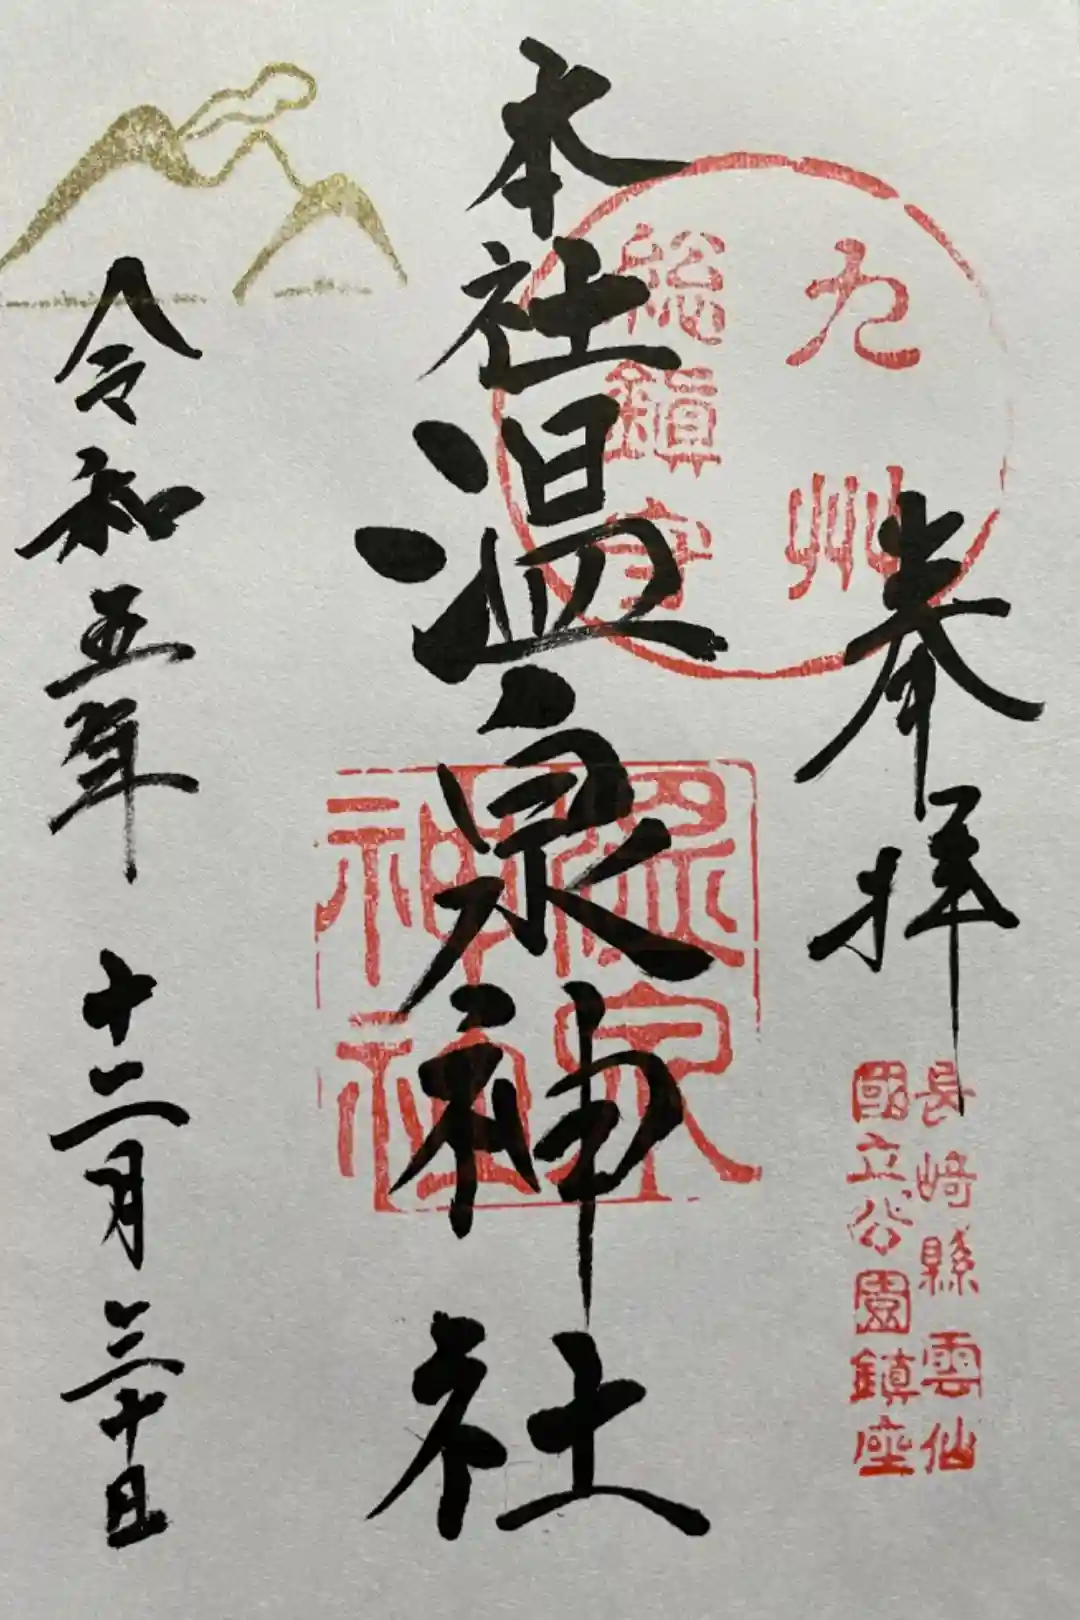 奉拝
長崎縣雲仙
國立公園鎮座
九州
総鎮守
本社温泉神社
温泉
神社
令和五年 十二月 三十日